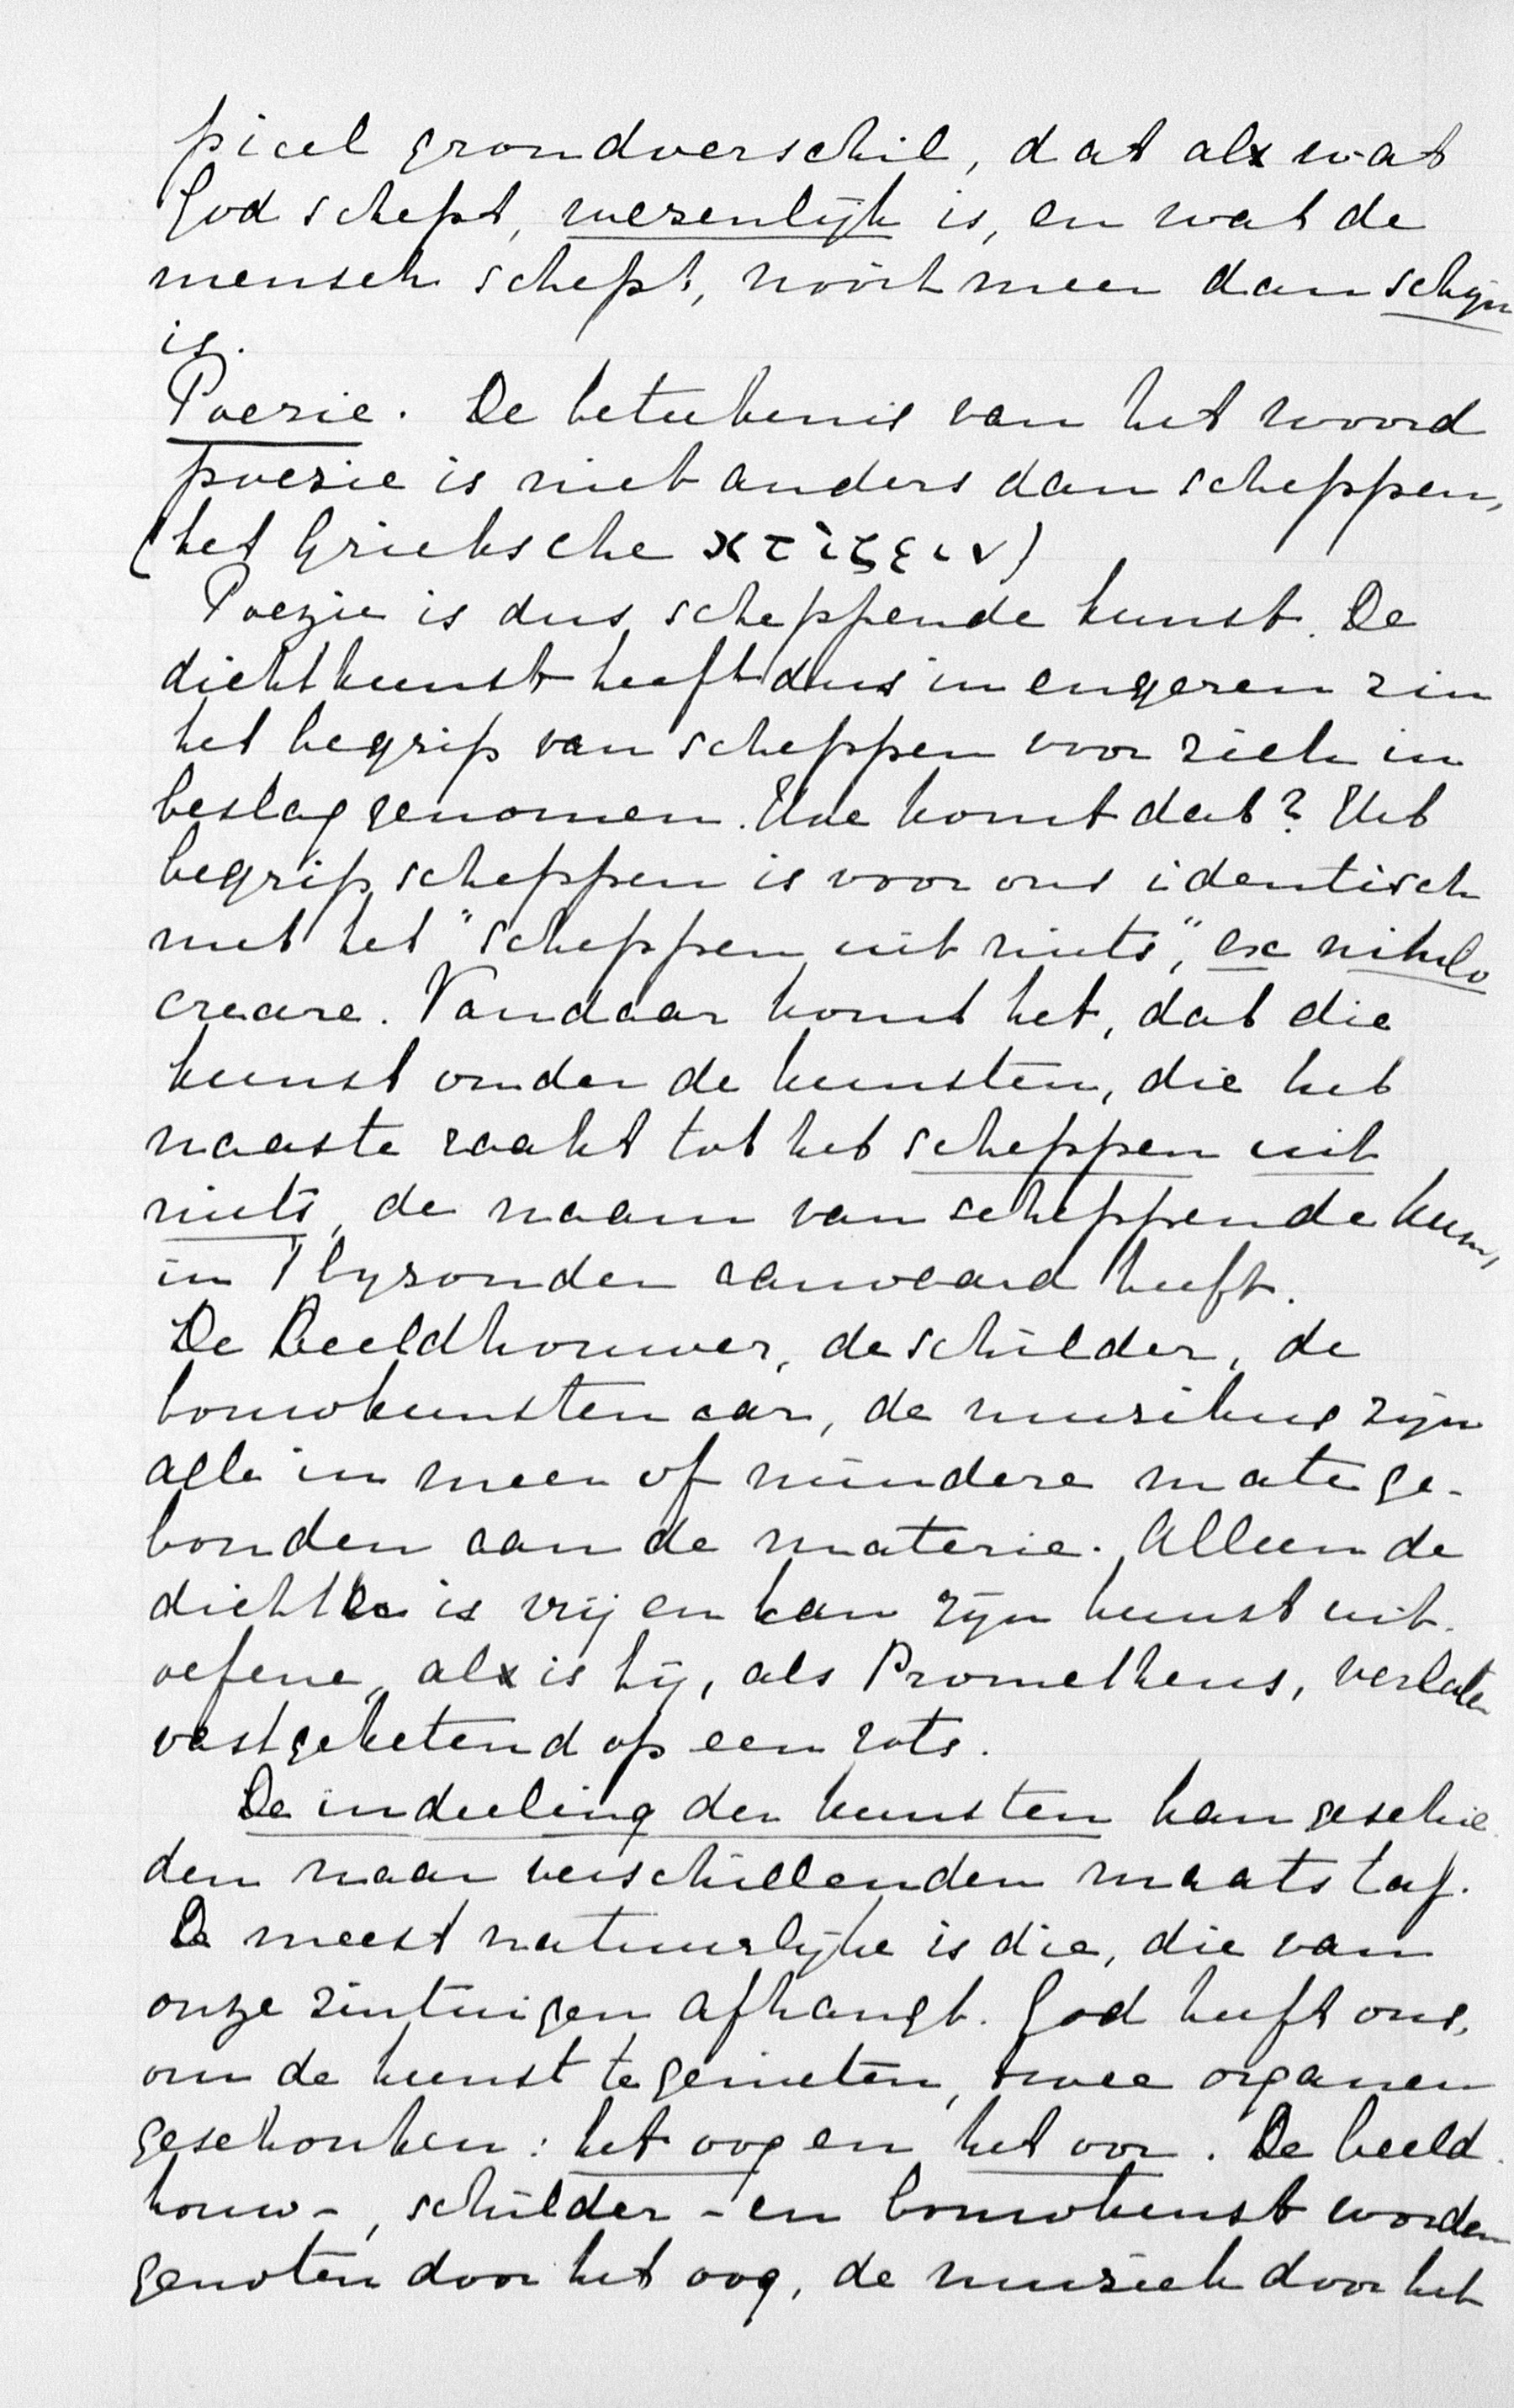 picel grondverschil, dat alx wat
God schept, wezenlijk is, en wat de
mensch schept, nooit meer dan schijn
is.
Poezie. De beteekenis van het woord
poezie is niet anders dan scheppen,
(het Grieksche χτίζειν)
Poezie is dus scheppende kunst. De
dichtkunst heeft dus in engeren zin
het begrip van scheppen voor zich in
beslag genomen. Hoe komt dat? Het
begrip scheppen is voor ons identisch
met het "scheppen uit niets", ex nihilo
creare. Vandaar komt het, dat die
kunst onder de kunsten, die het
naaste raakt tot het scheppen uit
niets, de naam van scheppende kunst
in 't byzonder aanvaard heeft.
De Beeldhouwer, de schilder, de
bouwkunstenaar, de muzikus zijn
alle in meer of mindere mate ge-
bonden aan de materie. Alleen de
dichter is vrij en kan zijn kunst uit-
oefene, alx is hij, als Prometheus, verlaten
vastgeketend op een rots.
De indeeling der kunsten kan geschie-
den naar verschillenden maatstaf.
De meest natuurlijke is die, die van
onze zintuigen afhangt. God heeft ons,
om de kunst te genieten, twee organen
geschonken: het oog en het oor. De beeld-
houw-, schilder- en bouwkunst worden
genoten door het oog, de muziek door het